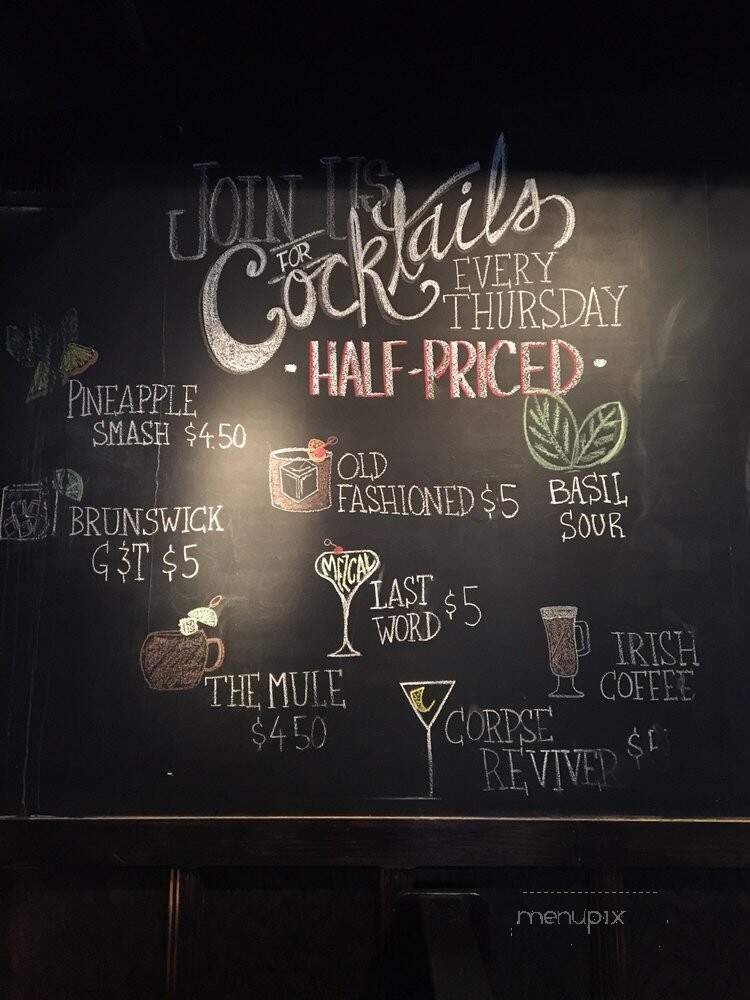 JOIN US
FOR
Cocktails
EVERY
THURSDAY
· HALF-PRICED ·
PINEAPPLE
SMASH $4.50
OLD
FASHIONED $5
BASIL
SOUR
BRUNSWICK
G&T $5
MEZCAL
LAST
WORD $5
IRISH
COFFEE
THE MULE
$4 50
CORPSE
REVIVER $
menupix